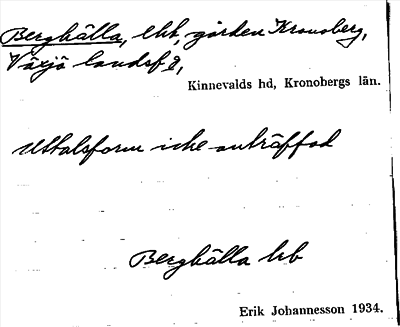 Berghälla, lht, gården Kronoberg,
Växjö landsf.,
Kinnevalds hd, Kronobergs län.
Uttalsform icke anträffad
Berghälla hb
Erik Johannesson 1934.